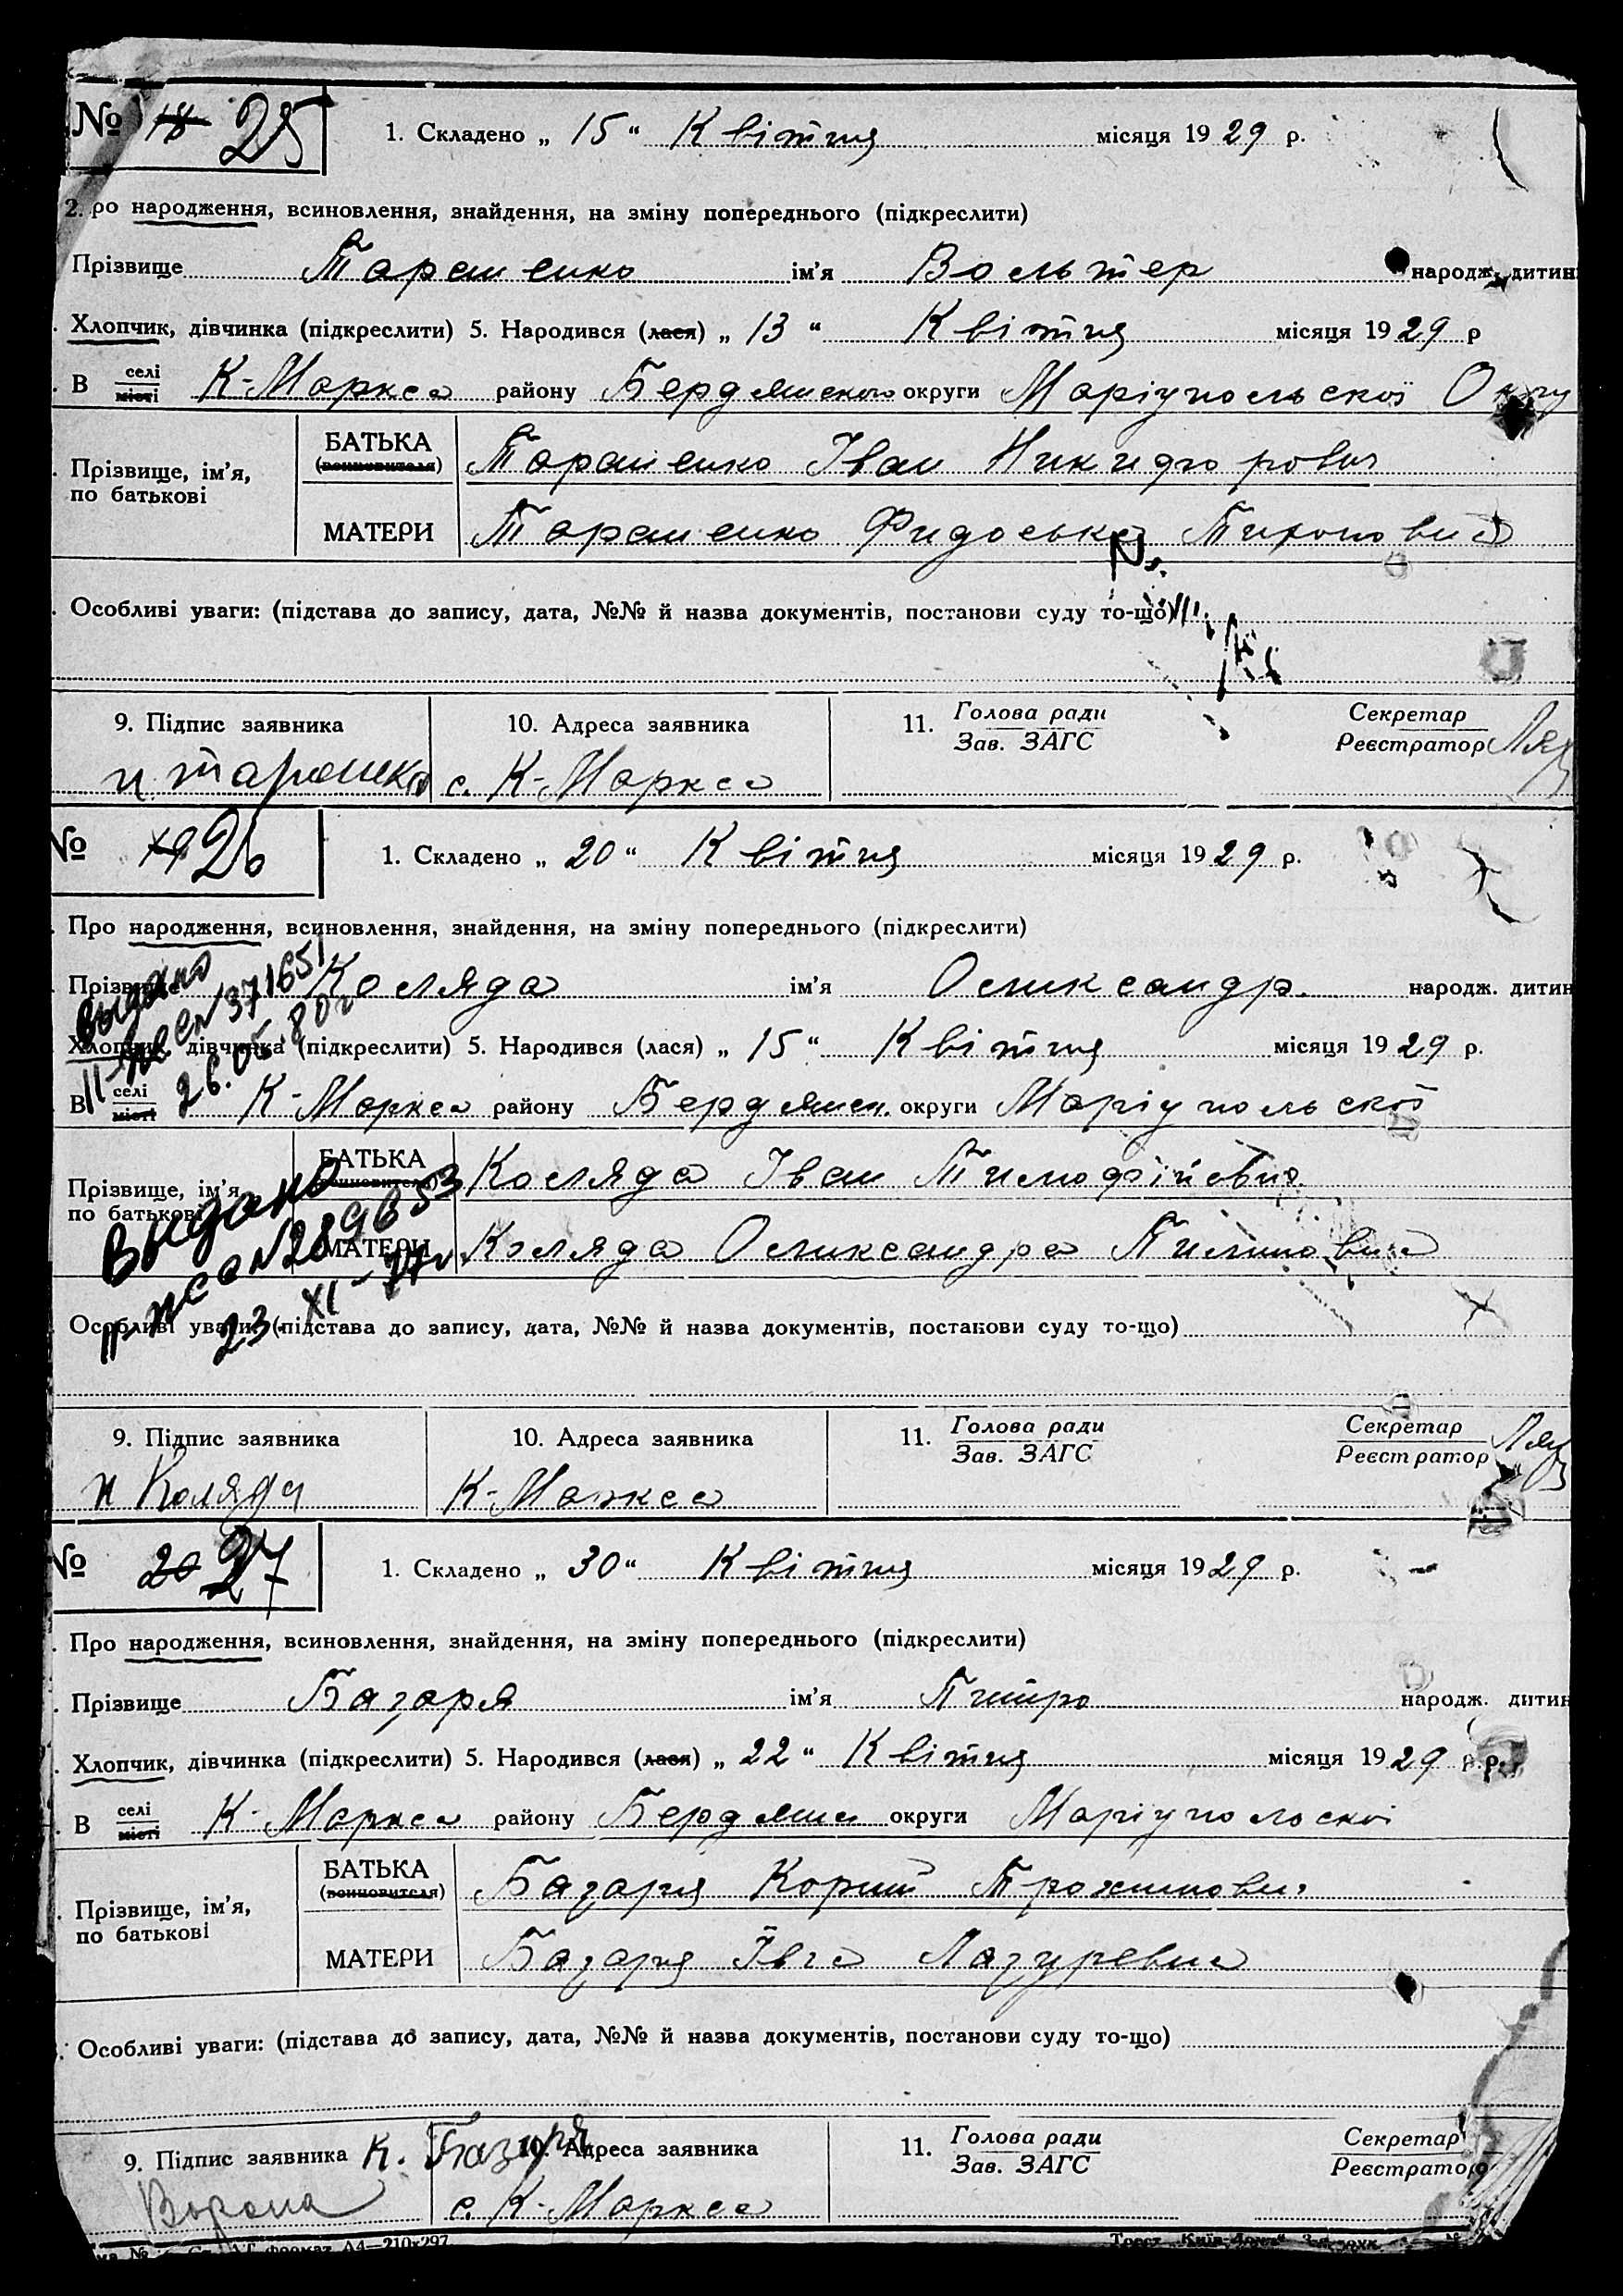 № 18 25 1. Складено „ 15 “ Квітня місяця 19 29 р.
2. ро народження, всиновлення, знайдення, на зміну попереднього (підкреслити)
Прізвище Тараненко ім’я Вольтер народж. дитин
Хлопчик, дівчинка (підкреслити) 5. Народився (лася) „ 13 “ Квітня місяця 19 29 р
В селі К-Маркса району Бердянського округи Маріупольскої
місті
БАТЬКА Тараненко Іван Никифорович
(всиновителя)
Прізвище, ім’я,
по батькові
МАТЕРИ Тараненко Фидоська Тихоновна
Особливі уваги: (підстава до запису, дата, №№ й назва документів, постанови суду то-що)
9. Підпис заявника 10. Адреса заявника 11. Голова ради Секретар
Зав. ЗАГС Реєстратор
с. К-Маркса
№ 19 26 1. Складено „ 20 “ Квітня місяця 19 29 р.
Про народження, всиновлення, знайдення, на зміну попереднього (підкреслити)
Прізвище Коляда ім’я Олександр народж. дитин
выдано
№ 371651
26.05.80г
Хлопчик, дівчинка (підкреслити) 5. Народився (лася) „ 15 “ Квітня місяця 19 29 р.
В селі К-Маркса району Бердянск. округи Маріупольскої
місті
БАТЬКА Коляда Іван Тимофійович
(всиновителя)
Прізвище, ім’я,
по батькові
МАТЕРИ Коляда Олександра Пилиповна
Выдано
№ 289653
23. XI – 77г.
Особливі уваги: (підстава до запису, дата, №№ й назва документів, постанови суду то-що)
9. Підпис заявника 10. Адреса заявника 11. Голова ради Секретар
Зав. ЗАГС Реєстратор
Коляда К-Маркса
№ 20 27 1. Складено „ 30 “ Квітня місяця 19 29 р.
Про народження, всиновлення, знайдення, на зміну попереднього (підкреслити)
Прізвище Базаря ім’я Питро народж. дитин
Хлопчик, дівчинка (підкреслити) 5. Народився (лася) „ 22 “ Квітня місяця 19 29 р.р.
В селі К-Маркса району Бердянск округи Маріупольскої
місті
БАТЬКА Базаря Корній
(всиновителя)
Прізвище, ім’я,
по батькові
МАТЕРИ Базаря Ївга Лазуревна
Особливі уваги: (підстава до запису, дата, №№ й назва документів, постанови суду то-що)
9. Підпис заявника К. Базаря 10. Адреса заявника 11. Голова ради Секретар
Зав. ЗАГС Реєстратор
Ворона с. К-Маркса
формат А4—210х297 Трест „Київ-Друк“